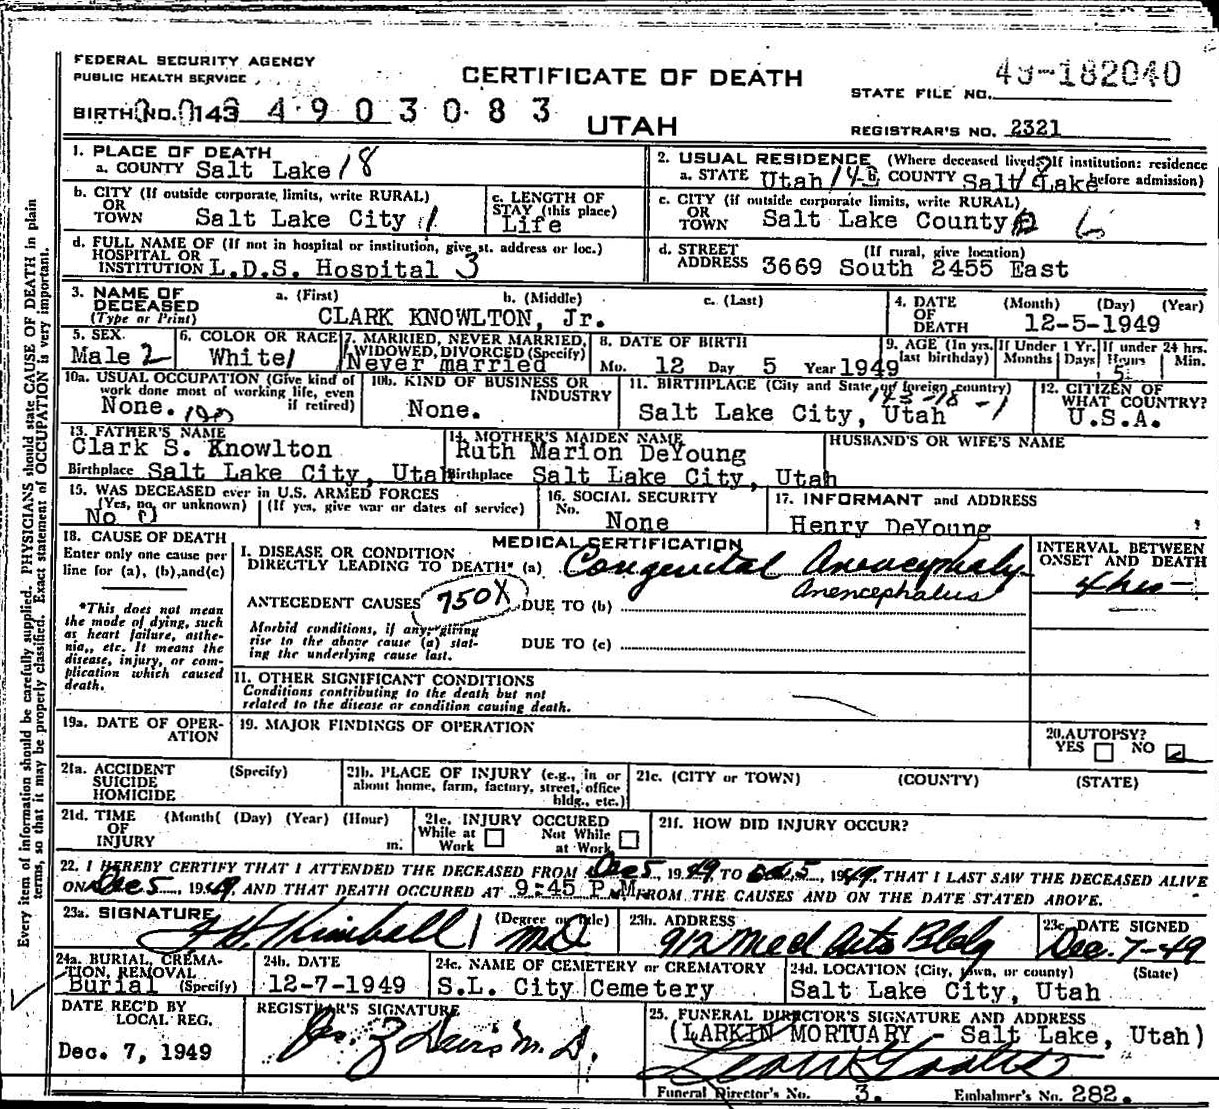 FEDERAL SECURITY AGENCY
PUBLIC HEALTH SERVICE
CERTIFICATE OF DEATH
UTAH
STATE FILE NO. 49-182040
BIRTH NO. 143 4903083
REGISTRAR'S NO. 2321
1. PLACE OF DEATH
a. COUNTY Salt Lake 18
2. USUAL RESIDENCE (Where deceased lived. If institution: residence before admission)
a. STATE Utah 143 b. COUNTY Salt Lake
b. CITY (If outside corporate limits, write RURAL) OR TOWN Salt Lake City 1
c. LENGTH OF STAY (this place) Life
c. CITY (if outside corporate limits, write RURAL) OR TOWN Salt Lake County
d. FULL NAME OF (If not in hospital or institution, give st. address or loc.) HOSPITAL OR INSTITUTION L.D.S. Hospital 3
d. STREET ADDRESS (If rural, give location) 3669 South 2455 East
3. NAME OF DECEASED (Type or Print) a. (First) b. (Middle) c. (Last)
CLARK KNOWLTON, Jr.
4. DATE OF DEATH (Month) (Day) (Year)
12-5-1949
5. SEX Male 2
6. COLOR OR RACE White 1
7. MARRIED, NEVER MARRIED, WIDOWED, DIVORCED (Specify) Never married
8. DATE OF BIRTH Mo. 12 Day 5 Year 1949
9. AGE (In yrs. last birthday) If Under 1 Yr. Months Days If under 24 hrs. Hours Min.
5
10a. USUAL OCCUPATION (Give kind of work done most of working life, even if retired) None.
10b. KIND OF BUSINESS OR INDUSTRY None.
11. BIRTHPLACE (City and State, or foreign country) 143-18-1
Salt Lake City, Utah
12. CITIZEN OF WHAT COUNTRY? U.S.A.
13. FATHER'S NAME
Clark S. Knowlton
Birthplace Salt Lake City, Utah
14. MOTHER'S MAIDEN NAME
Ruth Marion DeYoung
Birthplace Salt Lake City, Utah
HUSBAND'S OR WIFE'S NAME
15. WAS DECEASED ever in U.S. ARMED FORCES
(Yes, no, or unknown) (If yes, give war or dates of service)
No 0
16. SOCIAL SECURITY No. None
17. INFORMANT and ADDRESS
Henry DeYoung
18. CAUSE OF DEATH
Enter only one cause per line for (a), (b), and (c)
*This does not mean the mode of dying, such as heart failure, asthenia, etc. It means the disease, injury, or complication which caused death.
MEDICAL CERTIFICATION
I. DISEASE OR CONDITION DIRECTLY LEADING TO DEATH* (a) Congenital Anencephaly
Anencephalus
INTERVAL BETWEEN ONSET AND DEATH
4 hrs
ANTECEDENT CAUSES 750X DUE TO (b)
Morbid conditions, if any, giving rise to the above cause (a) stating the underlying cause last.
DUE TO (c)
11. OTHER SIGNIFICANT CONDITIONS
Conditions contributing to the death but not related to the disease or condition causing death.
19a. DATE OF OPERATION
19. MAJOR FINDINGS OF OPERATION
20. AUTOPSY?
YES NO
21a. ACCIDENT SUICIDE HOMICIDE (Specify)
21b. PLACE OF INJURY (e.g., in or about home, farm, factory, street, office bldg., etc.)
21c. (CITY or TOWN) (COUNTY) (STATE)
21d. TIME OF INJURY (Month( (Day) (Year) (Hour) m.
21e. INJURY OCCURED
While at Work Not While at Work
21f. HOW DID INJURY OCCUR?
22. I HEREBY CERTIFY THAT I ATTENDED THE DECEASED FROM Dec 5, 1949 TO Dec 5, 1949, THAT I LAST SAW THE DECEASED ALIVE
ON Dec 5, 1949, AND THAT DEATH OCCURED AT 9:45 P.M. FROM THE CAUSES AND ON THE DATE STATED ABOVE.
23a. SIGNATURE (Degree or title)
Kimball M.D.
23b. ADDRESS
912 Med Arts Bldg
23c. DATE SIGNED
Dec. 7-49
24a. BURIAL, CREMATION, REMOVAL (Specify) Burial
24b. DATE
12-7-1949
24c. NAME OF CEMETERY or CREMATORY
S.L. City Cemetery
24d. LOCATION (City, town, or county) (State)
Salt Lake City, Utah
DATE REC'D BY LOCAL REG.
Dec. 7, 1949
REGISTRAR'S SIGNATURE
M.D.
25. FUNERAL DIRECTOR'S SIGNATURE AND ADDRESS
(LARKIN MORTUARY - Salt Lake, Utah)
Funeral Director's No. 3. Embalmer's No. 282.
Every item of information should be carefully supplied. PHYSICIANS should state CAUSE OF DEATH in plain
terms, so that it may be properly classified. Exact statement of OCCUPATION is very important.